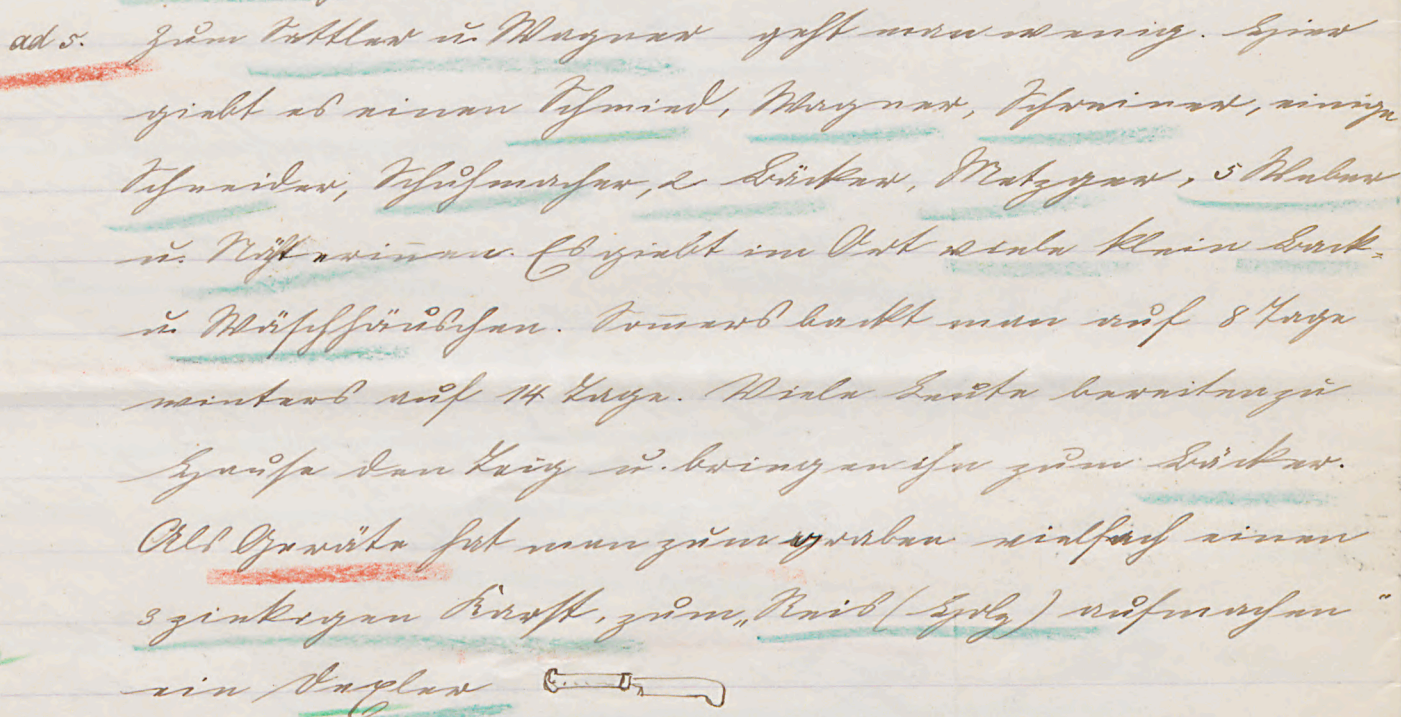 ad 5. Zum Sattler u. Wagner geht man wenig. Hier
giebt es einen Schmied, Wagner, Schreiner, einige
Schneider, Schuhmacher, 2 Bäcker, Metzger, 5 Weber
u. Näterinnen. Es giebt im Ort viele klein Back-
u. Wäschhäuschen. Sommers backt man auf 8 Tage
winters auf 14 Tage. Viele Leute bereiten zu
Hause den Teig u. bringen ihn zum Bäcker.
Als Geräte hat man zum graben vielfach einen
3 zinkigen Karst, zum „Reis (Holz) aufmachen“
ein